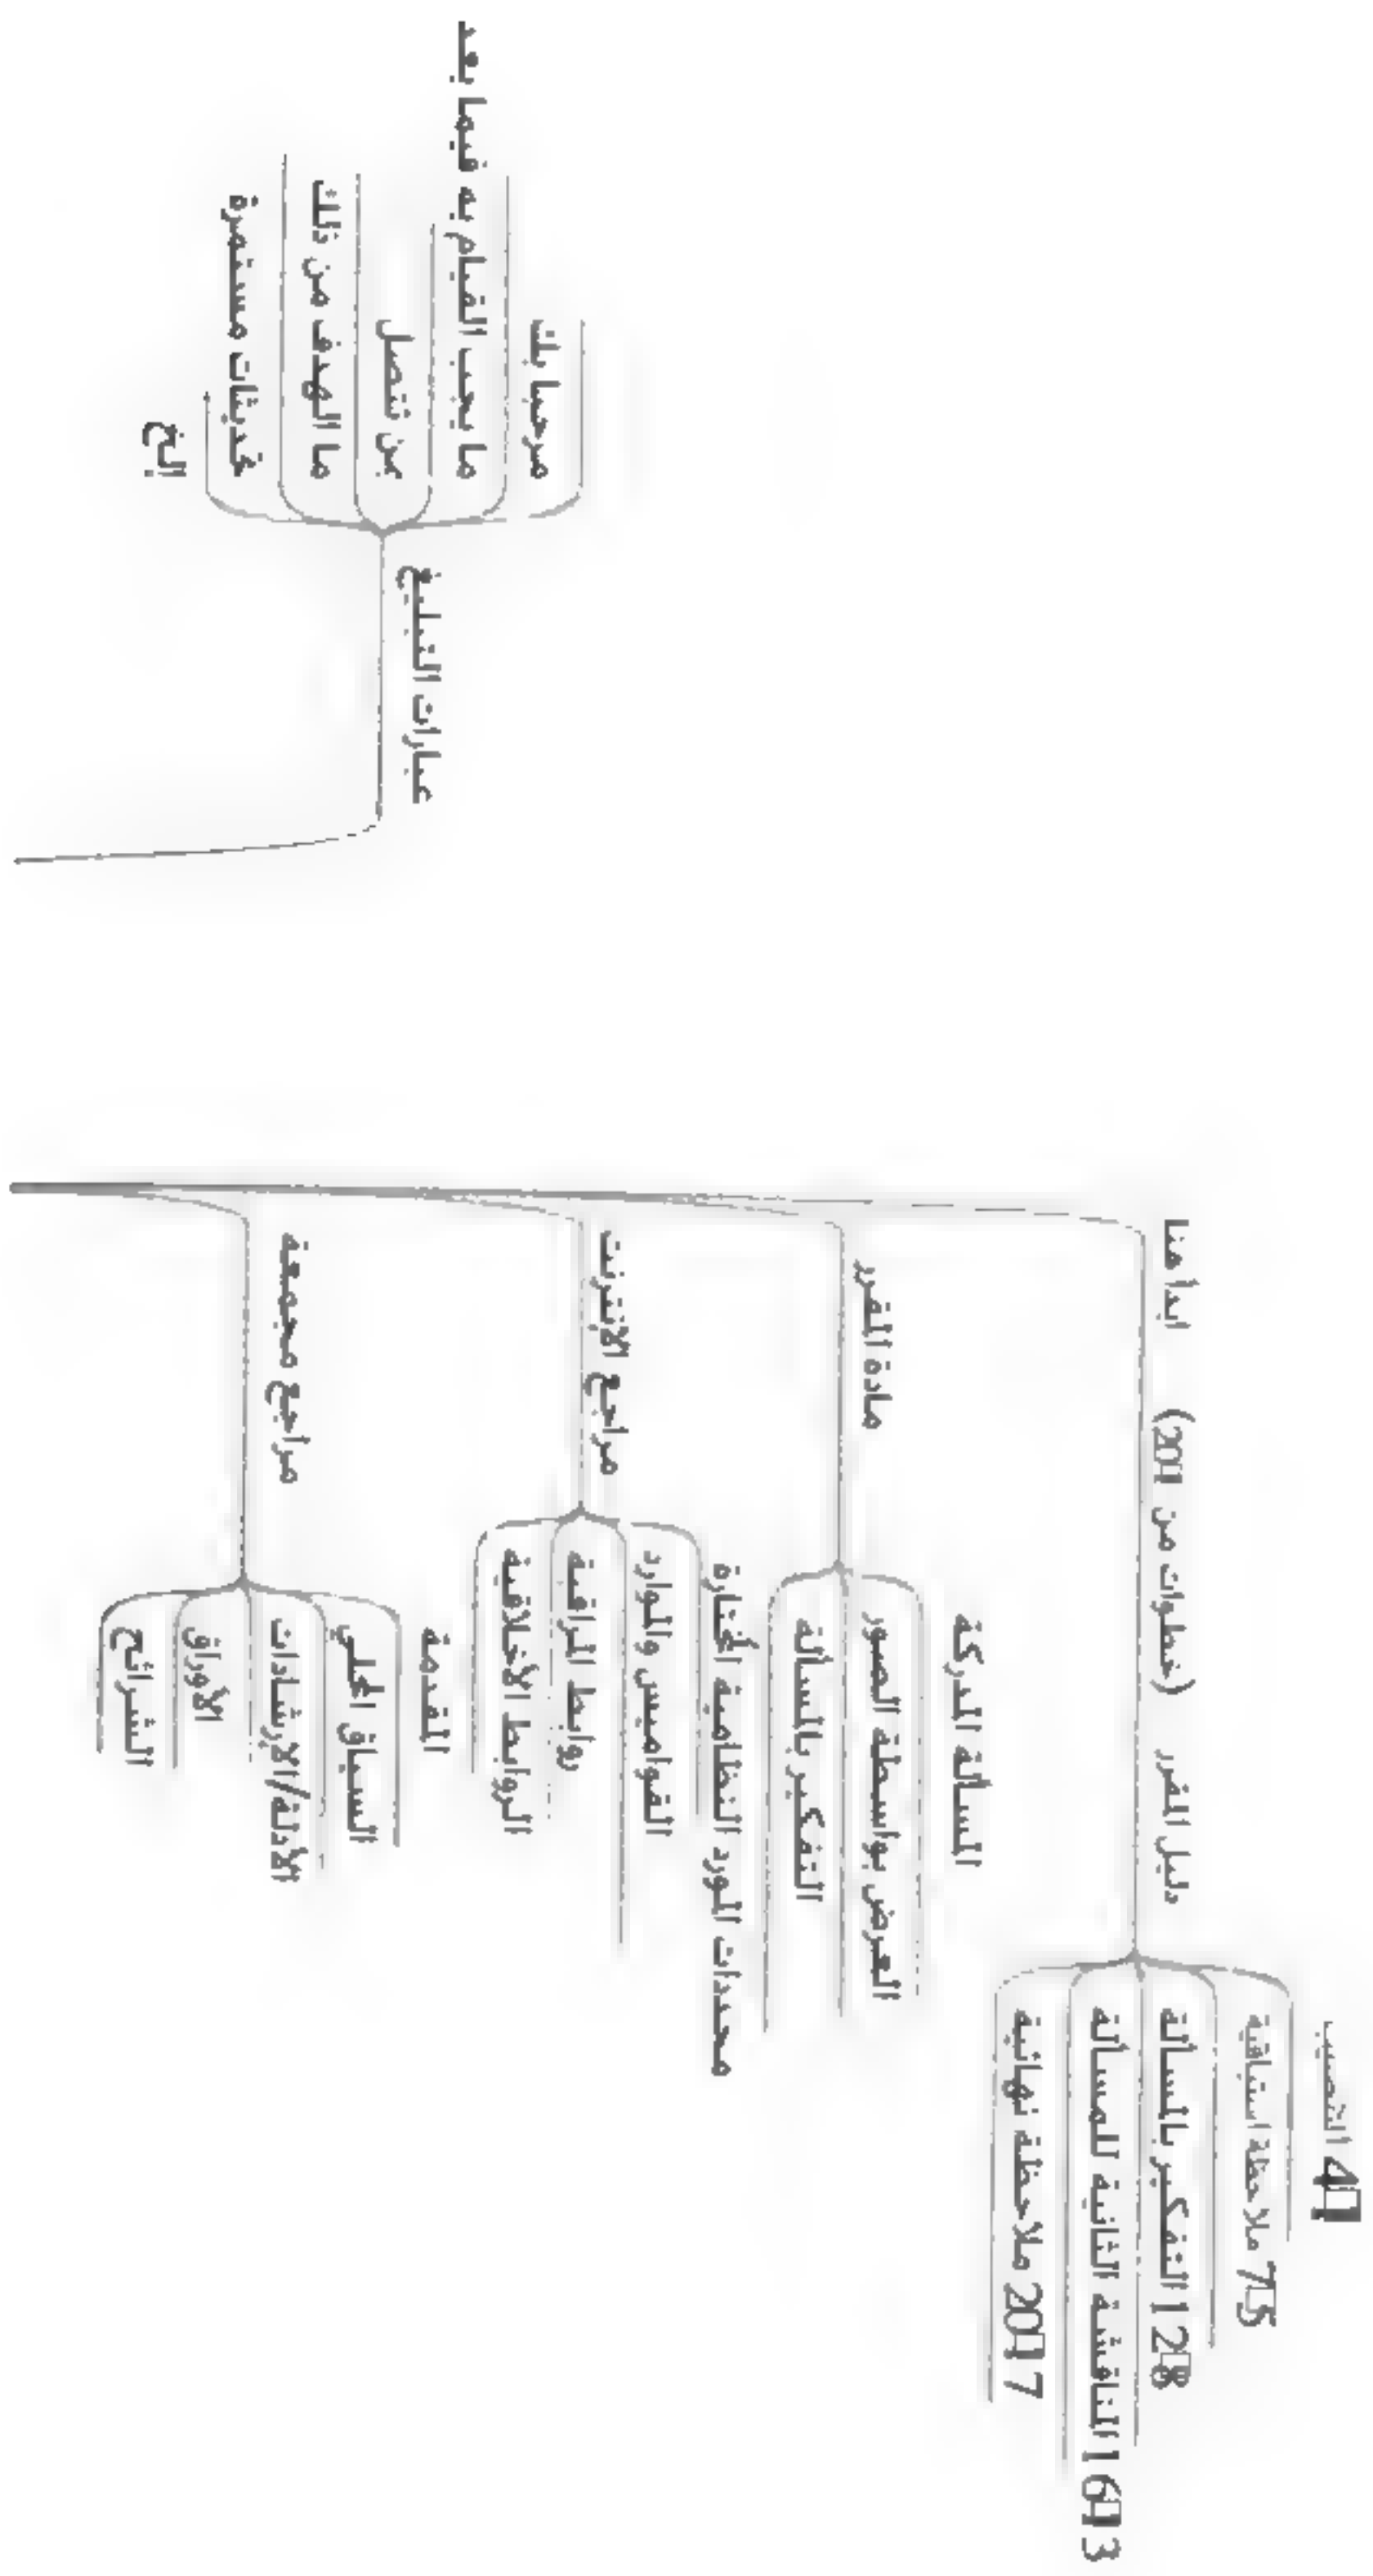 مرحبا بك
ما يجب القيام به فيما بعد
بمن تتصل
ما الهدف من ذلك
تحديثات مستمرة
إلخ
عبارات التبليغ
ابدأ هنا
(خطوات من 1-20)
دليل المقرر
4-1 التنصيب
7-5 ملاحظة استباقية
12-8 التفكير بالمسألة
16-13 المناقشة الثانية للمسألة
20-17 ملاحظة نهائية
مادة المقرر
المسألة المدركة
العرض بواسطة الصور
التفكير بالمسألة
مراجع الإنترنت
محددات المورد النظامية المختارة
القواميس والموارد
روابط المراقبة
الروابط الأخلاقية
مراجع مجمعة
المقدمة
السياق المحلي
الأدلة/الإرشادات
الأوراق
الشرائح